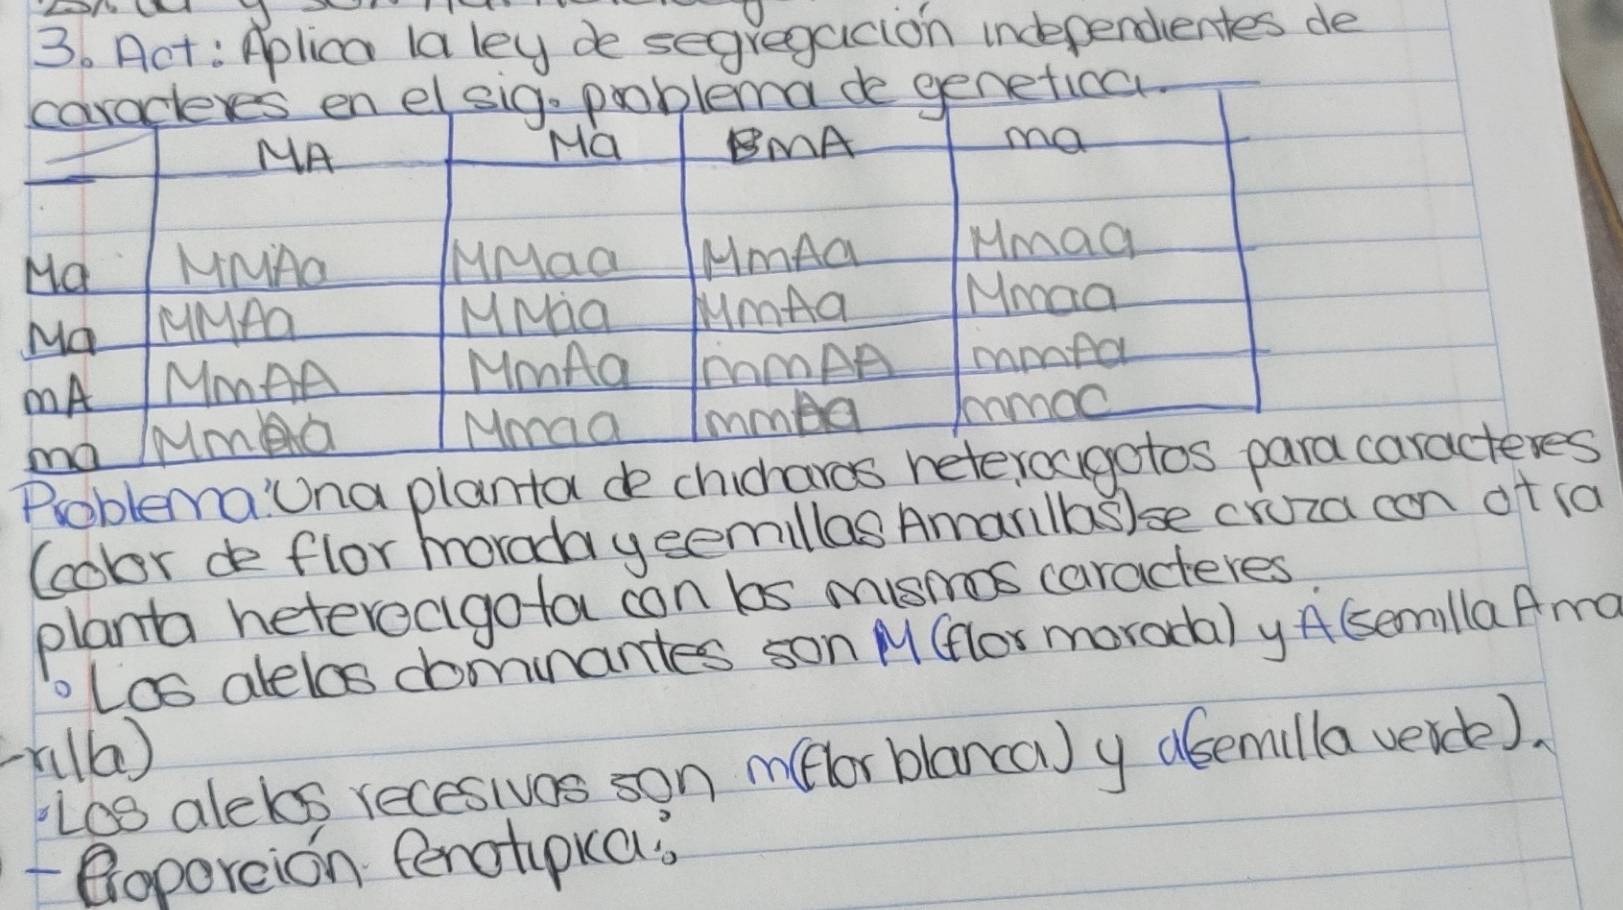 3. Act: Aplica la ley de segregación independientes de
caracteres en el sig. problema de genetica.
MA Ma mA ma
Ma MMAa MMaa MmAa Mmaa
Ma MMAa MMaa MmAa Mmaa
mA MmAA MmAa mmAA mmAa
ma MmAa Mmaa mmAa mmaa
Problema: Una planta de chicharos heterocigotos para caracteres
(color de flor morada y semillas Amarillas) se cruza con otra
planta heterocigota con los mismos caracteres.
• Los alelos dominantes son M (flor morada) y A (semilla Ama
-rilla)
• Los alelos recesivos son m (flor blanca) y a (semilla verde).
- Proporción fenotipica: